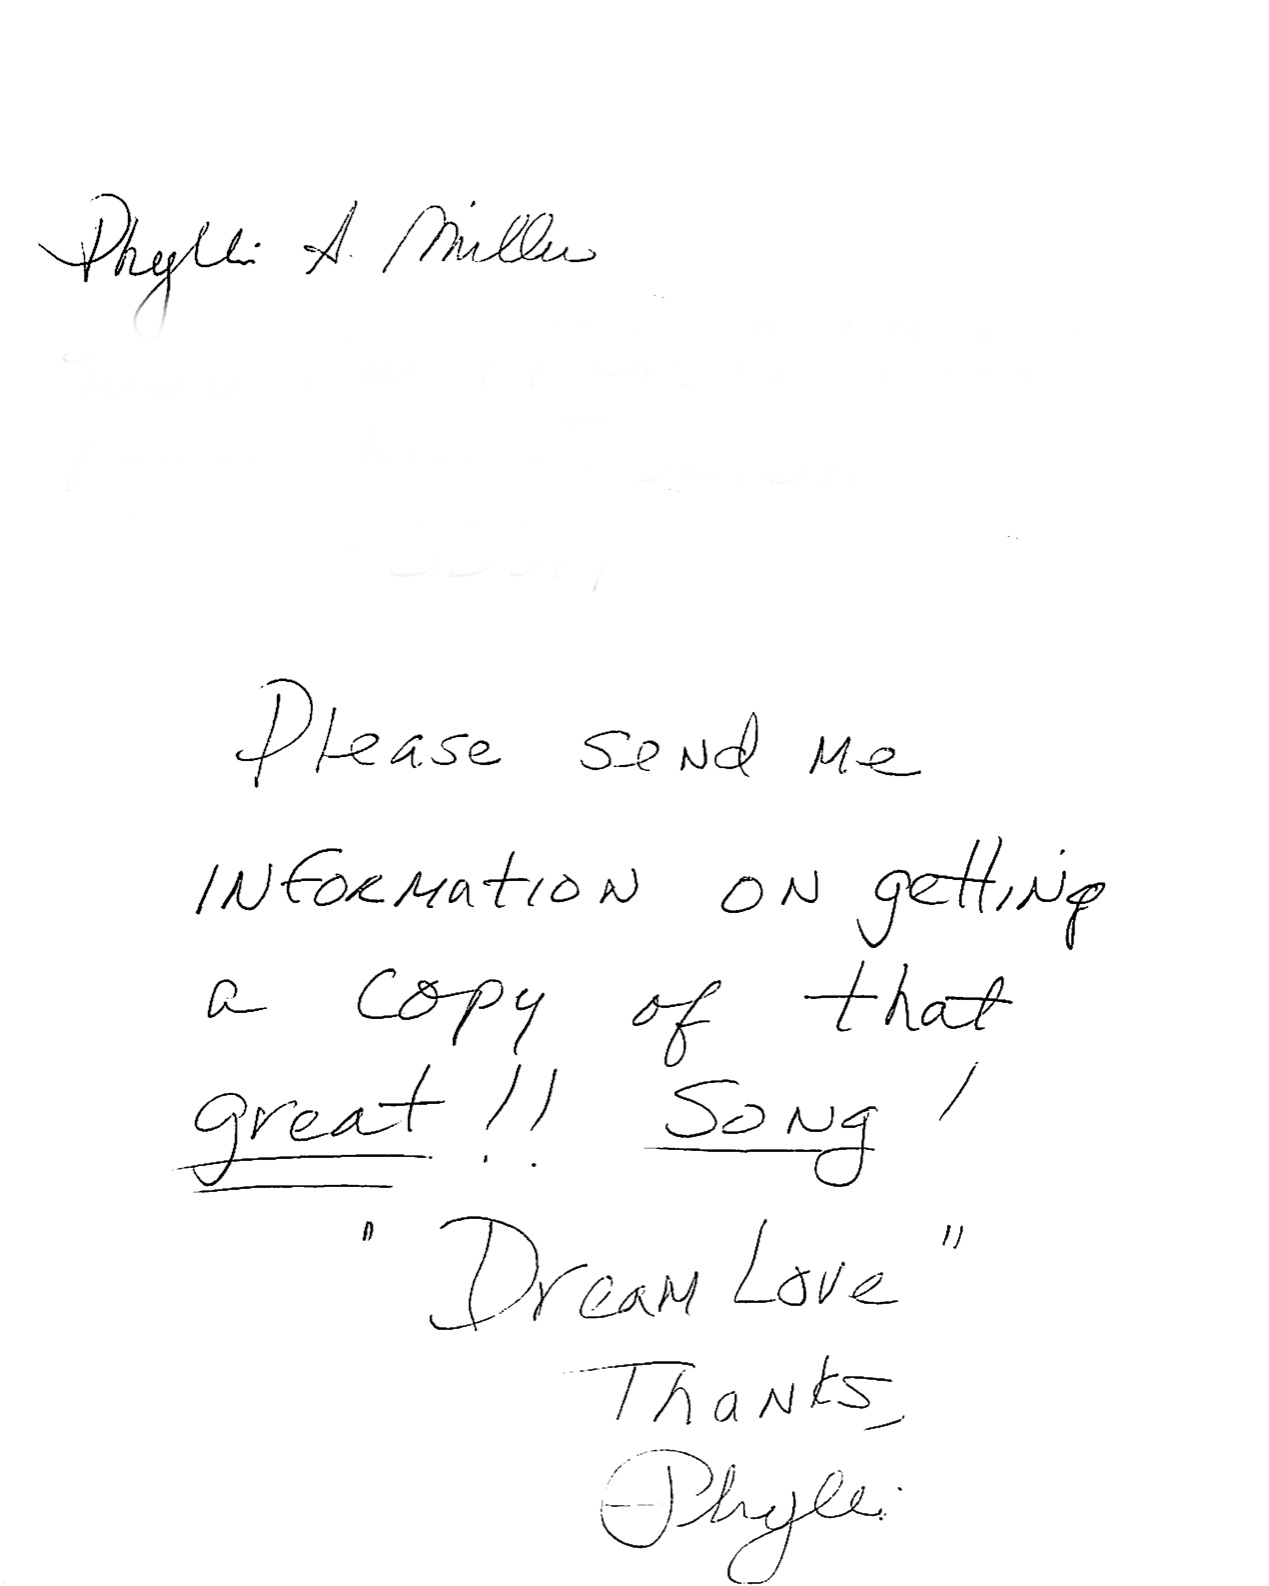 Phyllis A. Miller
Please send me
information on getting
a copy of that
great!! Song!
"Dream Love"
Thanks,
Phyllis